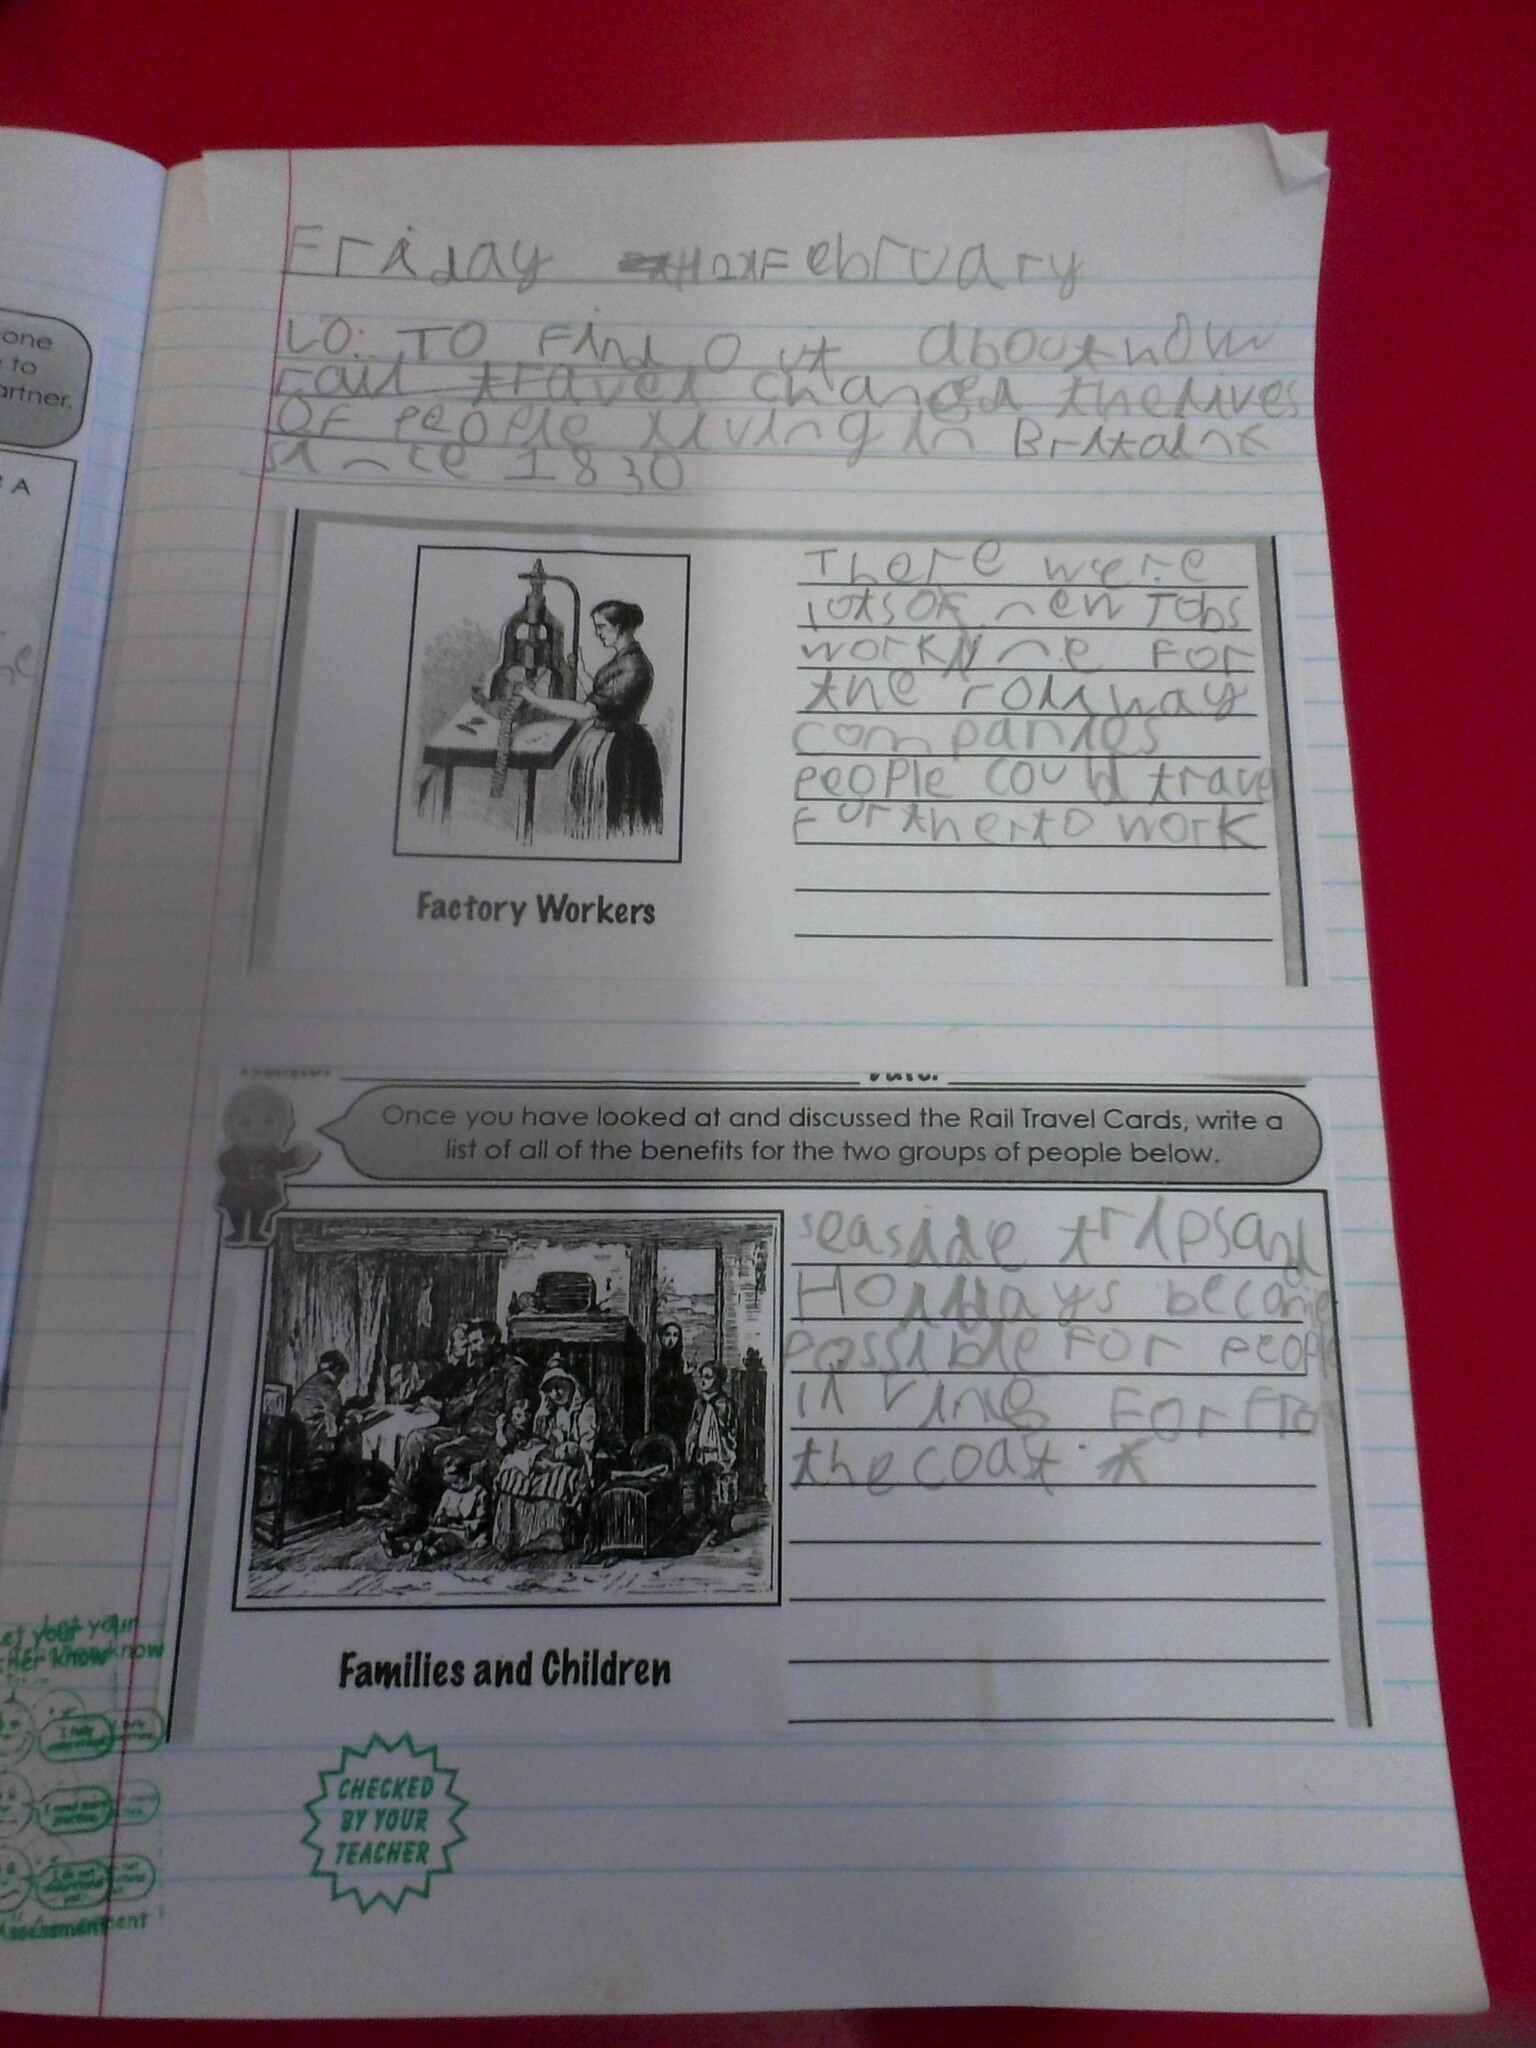 one
to
artner.
A
Friday February
LO: TO Find Out about how
rail travel changed the lives
OF people living in Britain
since 1830
There were
lots OF new Jobs
working FOR
the railway
companies
people could trave
Further to work
Factory Workers
Once you have looked at and discussed the Rail Travel Cards, write a
list of all of the benefits for the two groups of people below.
seaside trips and
Holidays became
possible FOR people
living For Fro
the coast.
Families and Children
CHECKED
BY YOUR
TEACHER